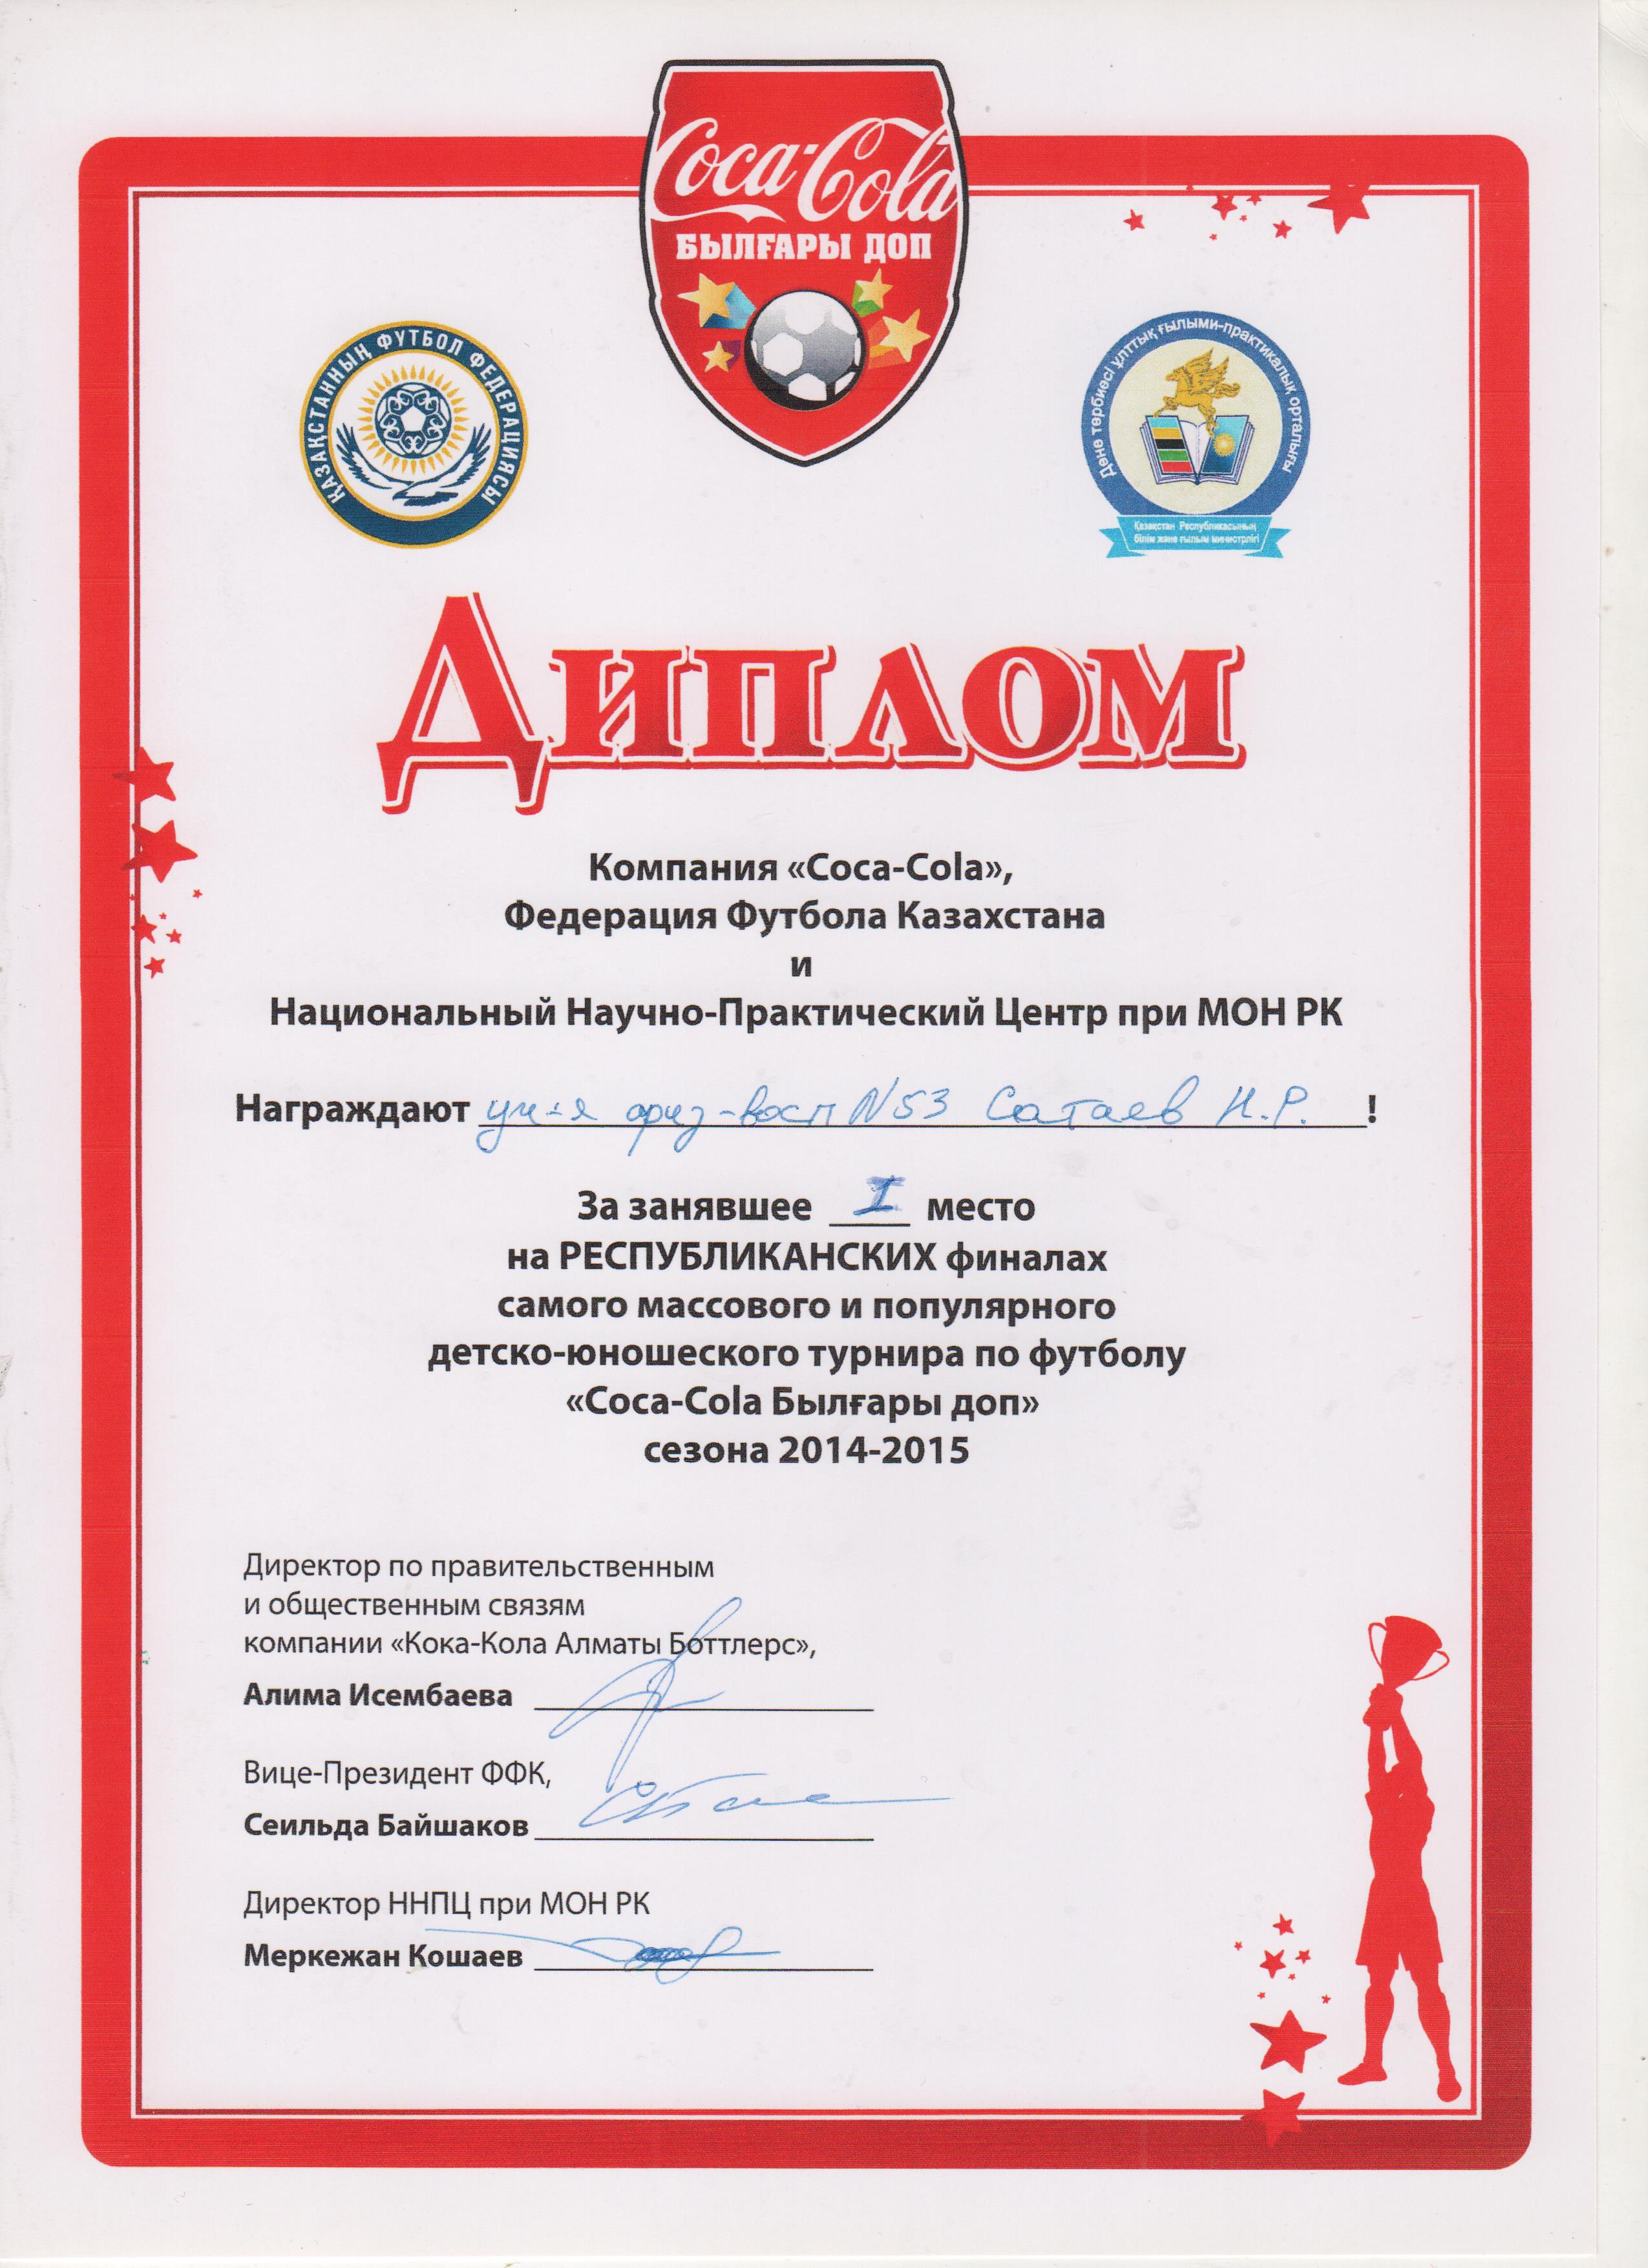 Coca-Cola
БЫЛҒАРЫ ДОП
ҚАЗАҚСТАННЫҢ ФУТБОЛ ФЕДЕРАЦИЯСЫ
Дене тәрбиесі ұлттық ғылыми-практикалық орталығы
Қазақстан Республикасының
білім және ғылым министрлігі
ДИПЛОМ
Компания «Coca-Cola»,
Федерация Футбола Казахстана
и
Национальный Научно-Практический Центр при МОН РК
Награждают уч-я физ-восп №53 Сатаев Н.Р. !
За занявшее I место
на РЕСПУБЛИКАНСКИХ финалах
самого массового и популярного
детско-юношеского турнира по футболу
«Coca-Cola Былғары доп»
сезона 2014-2015
Директор по правительственным
и общественным связям
компании «Кока-Кола Алматы Боттлерс»,
Алима Исембаева
Вице-Президент ФФК,
Сеильда Байшаков
Директор ННПЦ при МОН РК
Меркежан Кошаев